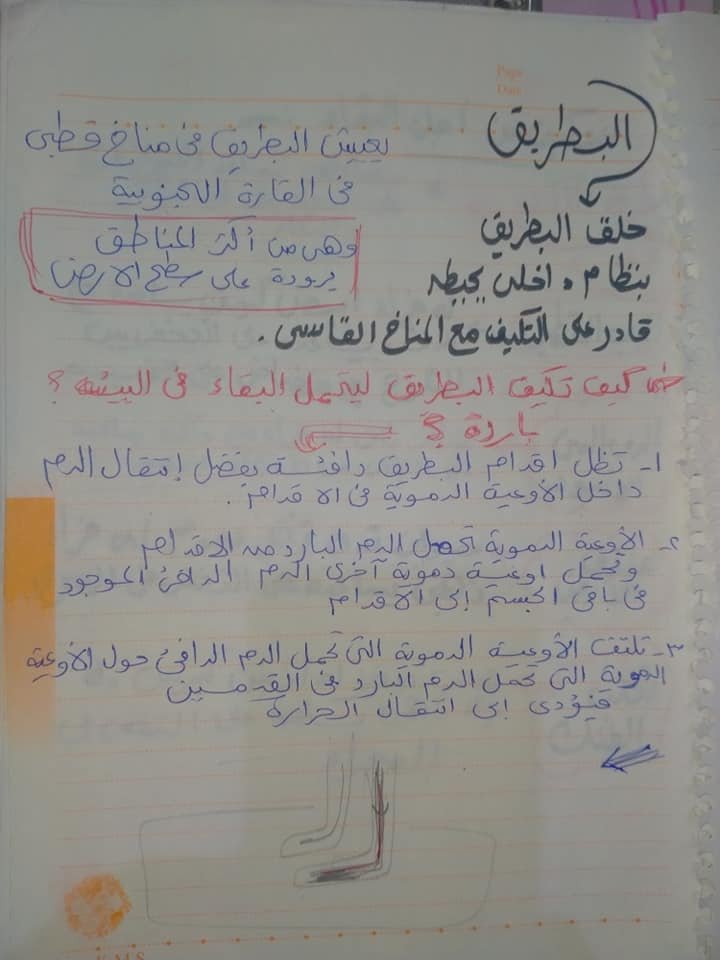 Page
Date
البطريق
يعيش البطريق فى مناخ قطبى
فى القارة الجنوبية
وهى من أكثر المناطق
برودة على سطح الارض
خلق البطريق
بنظام داخلى يجعله
قادر على التكيف مع المناخ القاسى .
كيف تكيف البطريق ليتحمل البقاء فى البيئة ؟
باردة ؟
١- تظل اقدام البطريق دافئة بفضل إنتقال الدم
داخل الأوعية الدموية فى الاقدام .
٢- الأوعية الدموية تحمل الدم البارد من الاقدام
وتحمل اوعية دموية آخرى الدم الدافئ الموجود
فى باقى الجسم إلى الاقدام
٣- تلتف الأوعية الدموية التى تحمل الدم الدافئ حول الأوعية
الدموية التى تحمل الدم البارد فى القدمين
فيؤدى إلى انتقال الحرارة